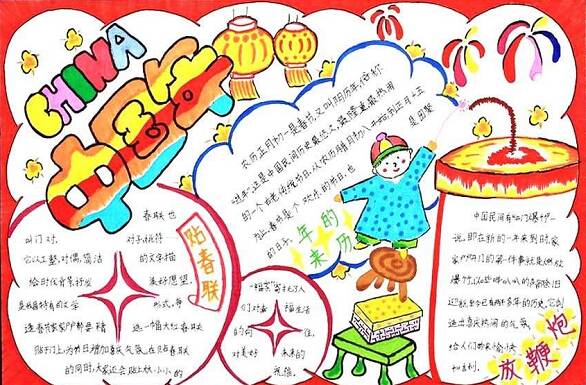 CHINA
中国年
农历正月初一是春节,又叫阴历年,俗称
"过年",这是中国民间历史最悠久、最隆重最热闹
的一个古老传统节日。从农历腊月初八开始到正月十五
为止,春节是个欢乐的节日,也是团聚
的日子。
年的来历
贴春联
春联也
叫门对、对子、桃符
它以工整、对偶、简洁的文字描
绘时代背景,抒发美好愿望,
是我国特有的文学形式。每
逢春节,家家户户都要精选一幅大红春联
贴于门上,为节日增加喜庆气氛。在贴春联
的同时,大家还会贴上大小小的
"福字"寄托了人
们对幸福生活
的向往,
对美好未来的
祝愿。
中国民间有"开门爆竹"一
说,即在新的一年来到时,家
家户户开门的第一件事就是燃放
爆竹,以哔哔叭叭的声音除旧
迎新,至今已有两千多年的历史,它创
造出喜庆热闹的气氛。
给人们带来愉快
和吉利。
放鞭炮